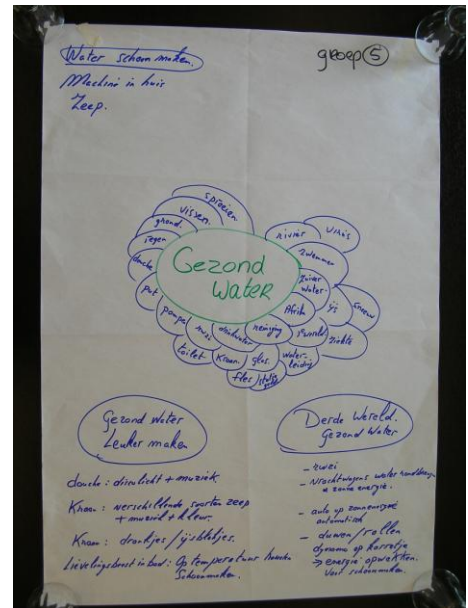 Water schoon maken.
groep 5
Machine in huis
Zeep.
sproeien
vissen.
grond.
regen
douche
put
pompet
toilet
drinkwater
Kraan.
fles
glas.
reiniging
water-
leiding
Afrika
3e wereld
ziekte
zuiver
water
ijs
sneeuw
zwemmen
rivier
virus
Gezond
Water
Gezond Water
Leuker maken
douche: discolicht + muziek.
Kraan: verschillende soorten zeep
+ muziek + kleur.
Kraan: drankjes / ijsblokjes.
Lievelingsbeest in bad: Op temperatuur houden
Schoonmaken.
Derde Wereld.
Gezond Water
- Vrachtwagens water
zonne energie.
- auto op zonnenergie
automatisch
- duwen/rollen
dynamo op karretje
→ energie opwekken.
Voor schoonmaken.